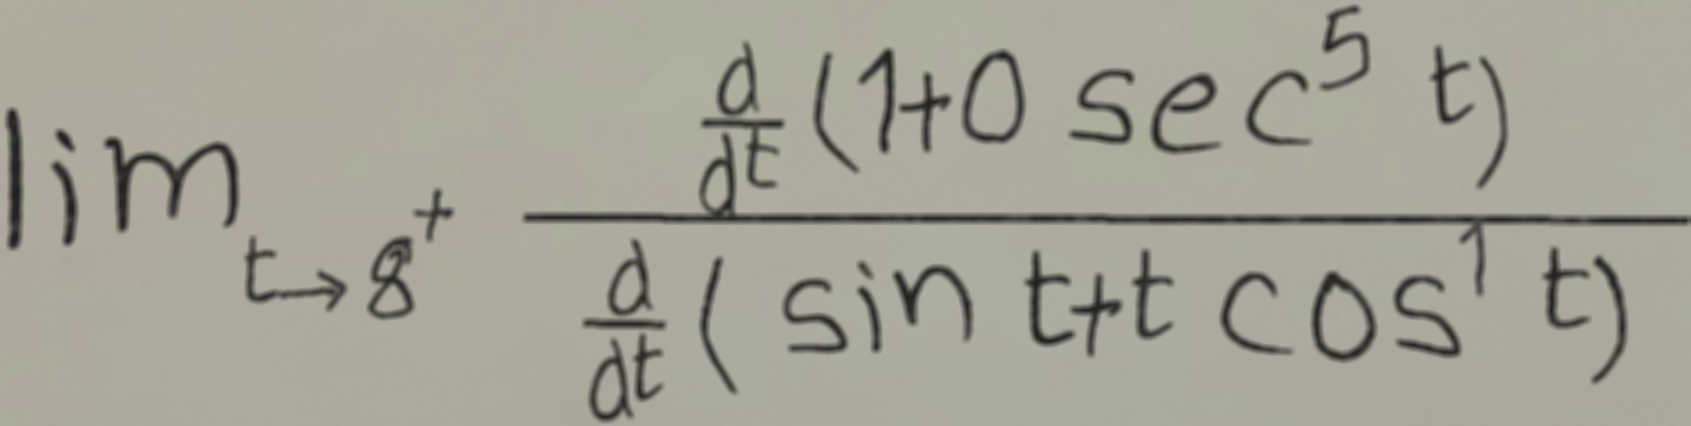 \lim_{t \to 8^+} \frac{\frac{d}{dt}(1+0 \sec^5 t)}{\frac{d}{dt}(\sin t+t \cos^1 t)}